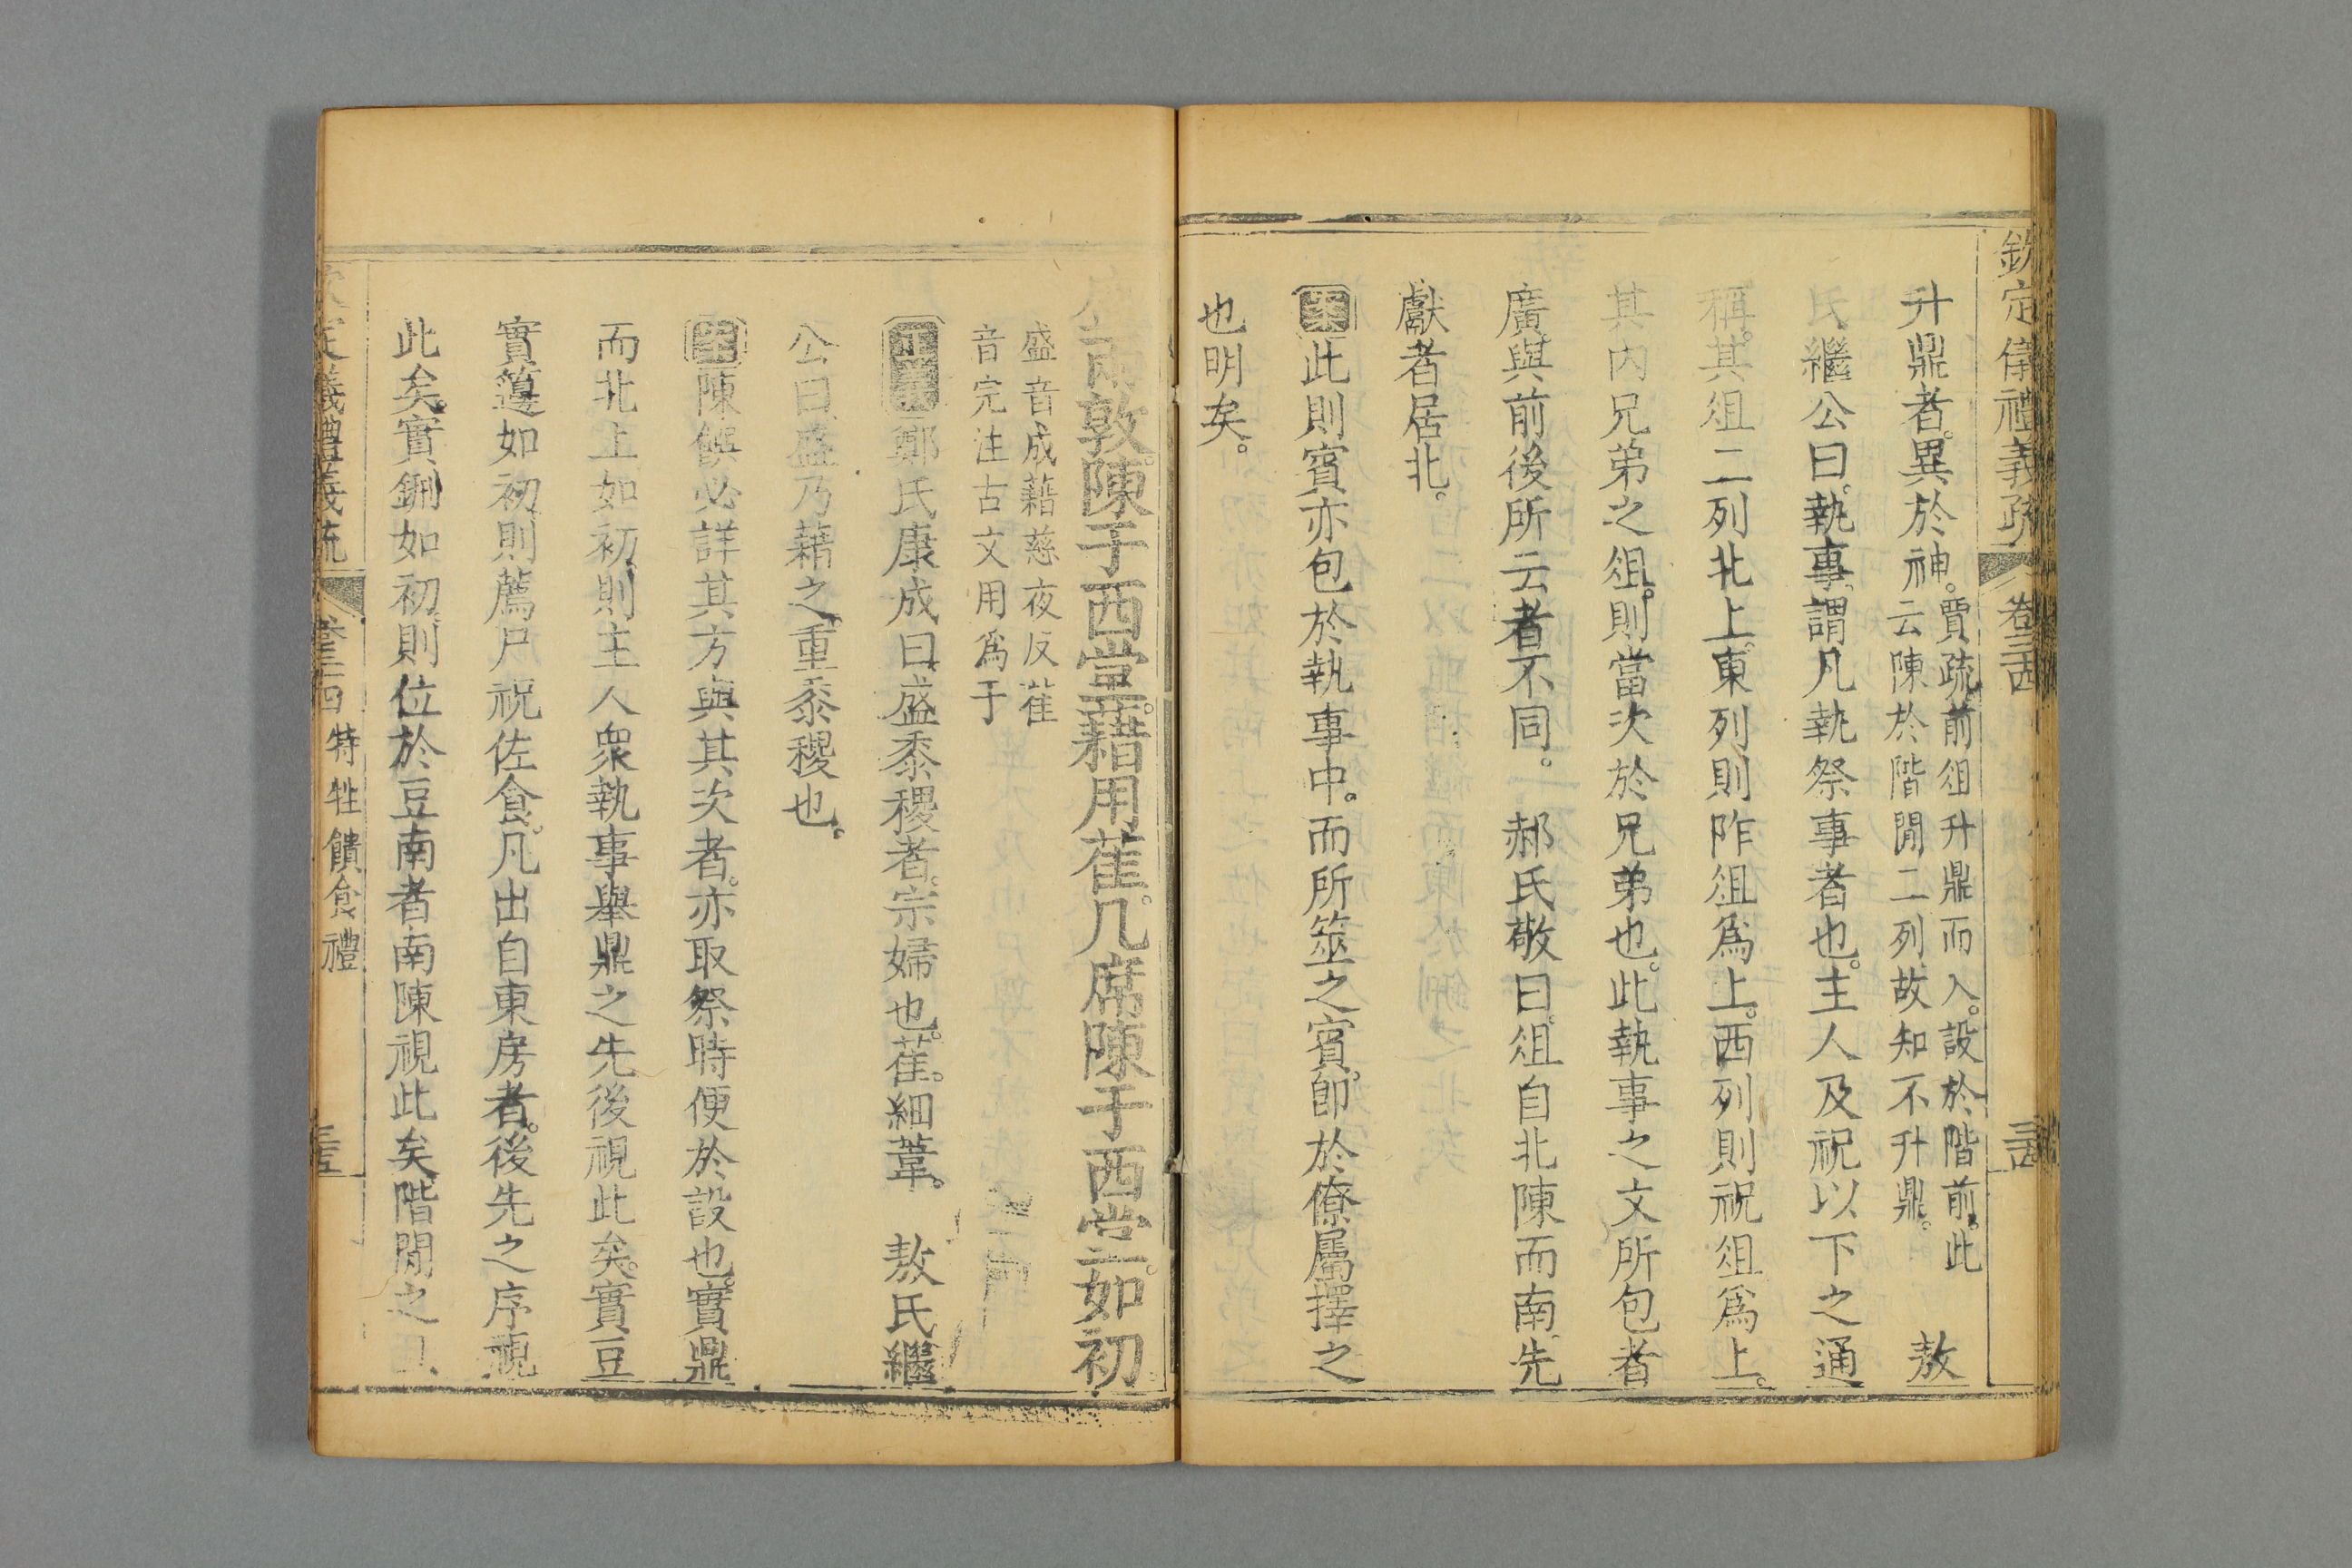 欽定儀禮義疏 卷三四 三四
升鼎者。異於神。賈疏前俎升鼎而入。設於階前。此
云陳於階閒二列故知不升鼎。 敖
氏繼公曰。執事。謂凡執祭事者也。主人及祝以下之通
稱。其俎二列北上。東列則阼俎爲上。西列則祝俎爲上。
其內兄弟之俎。則當次於兄弟也。此執事之文所包者
廣。與前後所云者不同。 郝氏敬曰。俎自北陳而南。先
獻者居北。
案此則賓亦包於執事中。而所筮之賓。卽於僚屬擇之
也明矣。
兩敦。陳于西堂。藉用萑。几席陳于西堂。如初
盛音成藉慈夜反萑
音完注古文用爲于
正義鄭氏康成曰。盛黍稷者。宗婦也。萑。細葦。 敖氏繼
公曰。盛乃藉之。重黍稷也。
案陳饌必詳其方與其次者。亦取祭時便於設也。實鼎
而北上如初。則主人衆執事舉鼎之先後視此矣。實豆
實籩如初。則薦尸祝佐食。凡出自東房者。後先之序視
此矣。實鉶如初。則位於豆南者南陳視此矣。階閒之
定儀禮義疏 卷三四 特牲饋食禮 三五